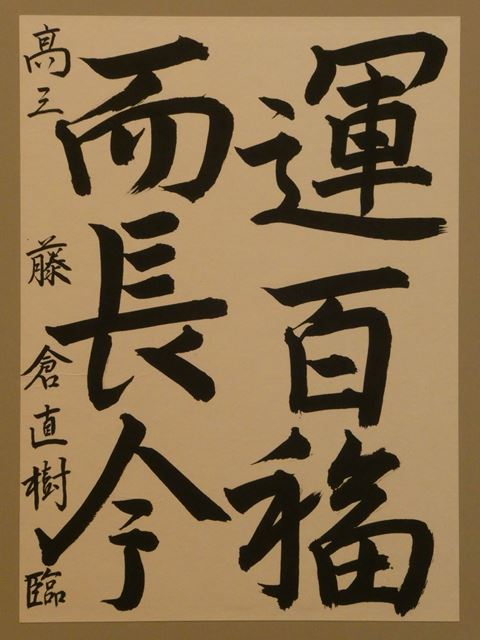 運百福
而長今
高三 藤倉直樹臨